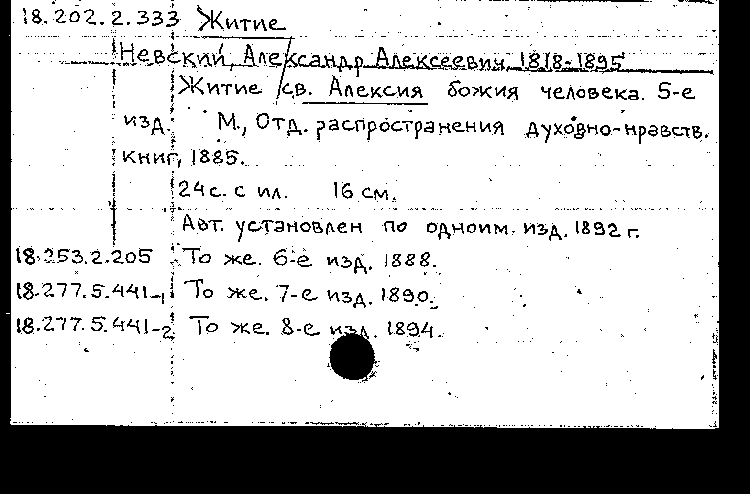 18.202.2.333 Житие
Невский, Александр Алексеевич, 1818-1895
Житие св. Алексия божия человека. 5-е
изд. М., Отд. распространения духовно-нравств.
книг, 1885.
24 с. с ил. 16 см.
Авт. установлен по одноим. изд. 1892 г.
18.253.2.205 То же. 6-е изд. 1888.
18.277.5.441-1 То же. 7-е изд. 1890.
18.277.5.441-2 То же. 8-е изд. 1894.